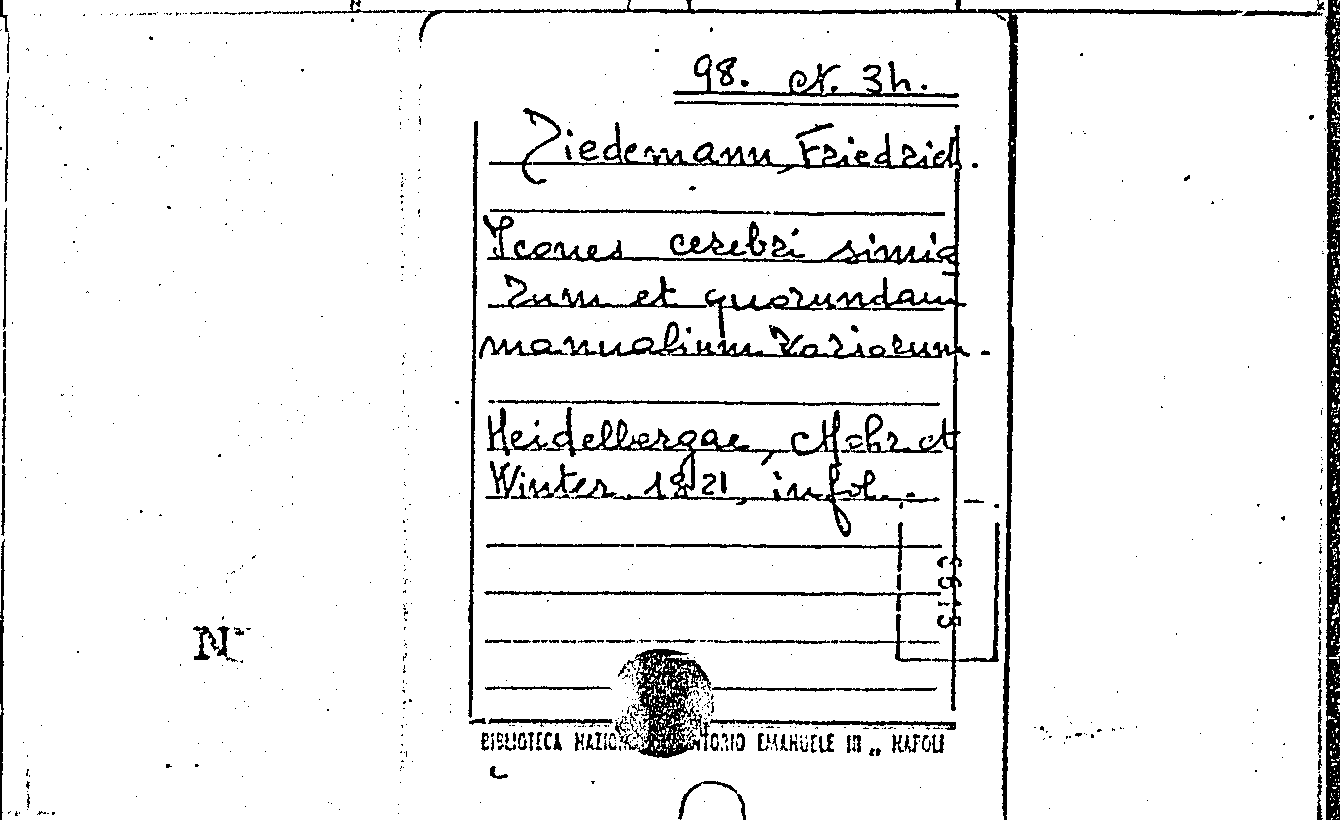 98. N. 3h.
Tiedemann, Friedrich.
Icones cerebri simia
rum et quorundam
manualium rariorum.
Heidelbergae, Mohr et
Winter 1821, in fol.
5615
N
BIBLIOTECA EMANUELE III „ NAPOLI